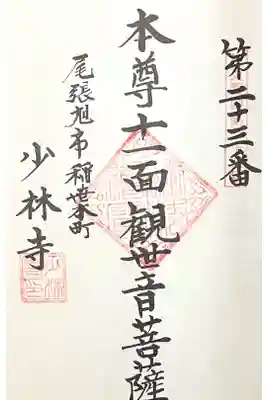 第二十三番
本尊十一面観世音菩薩
尾張旭市稲葉町
少林寺